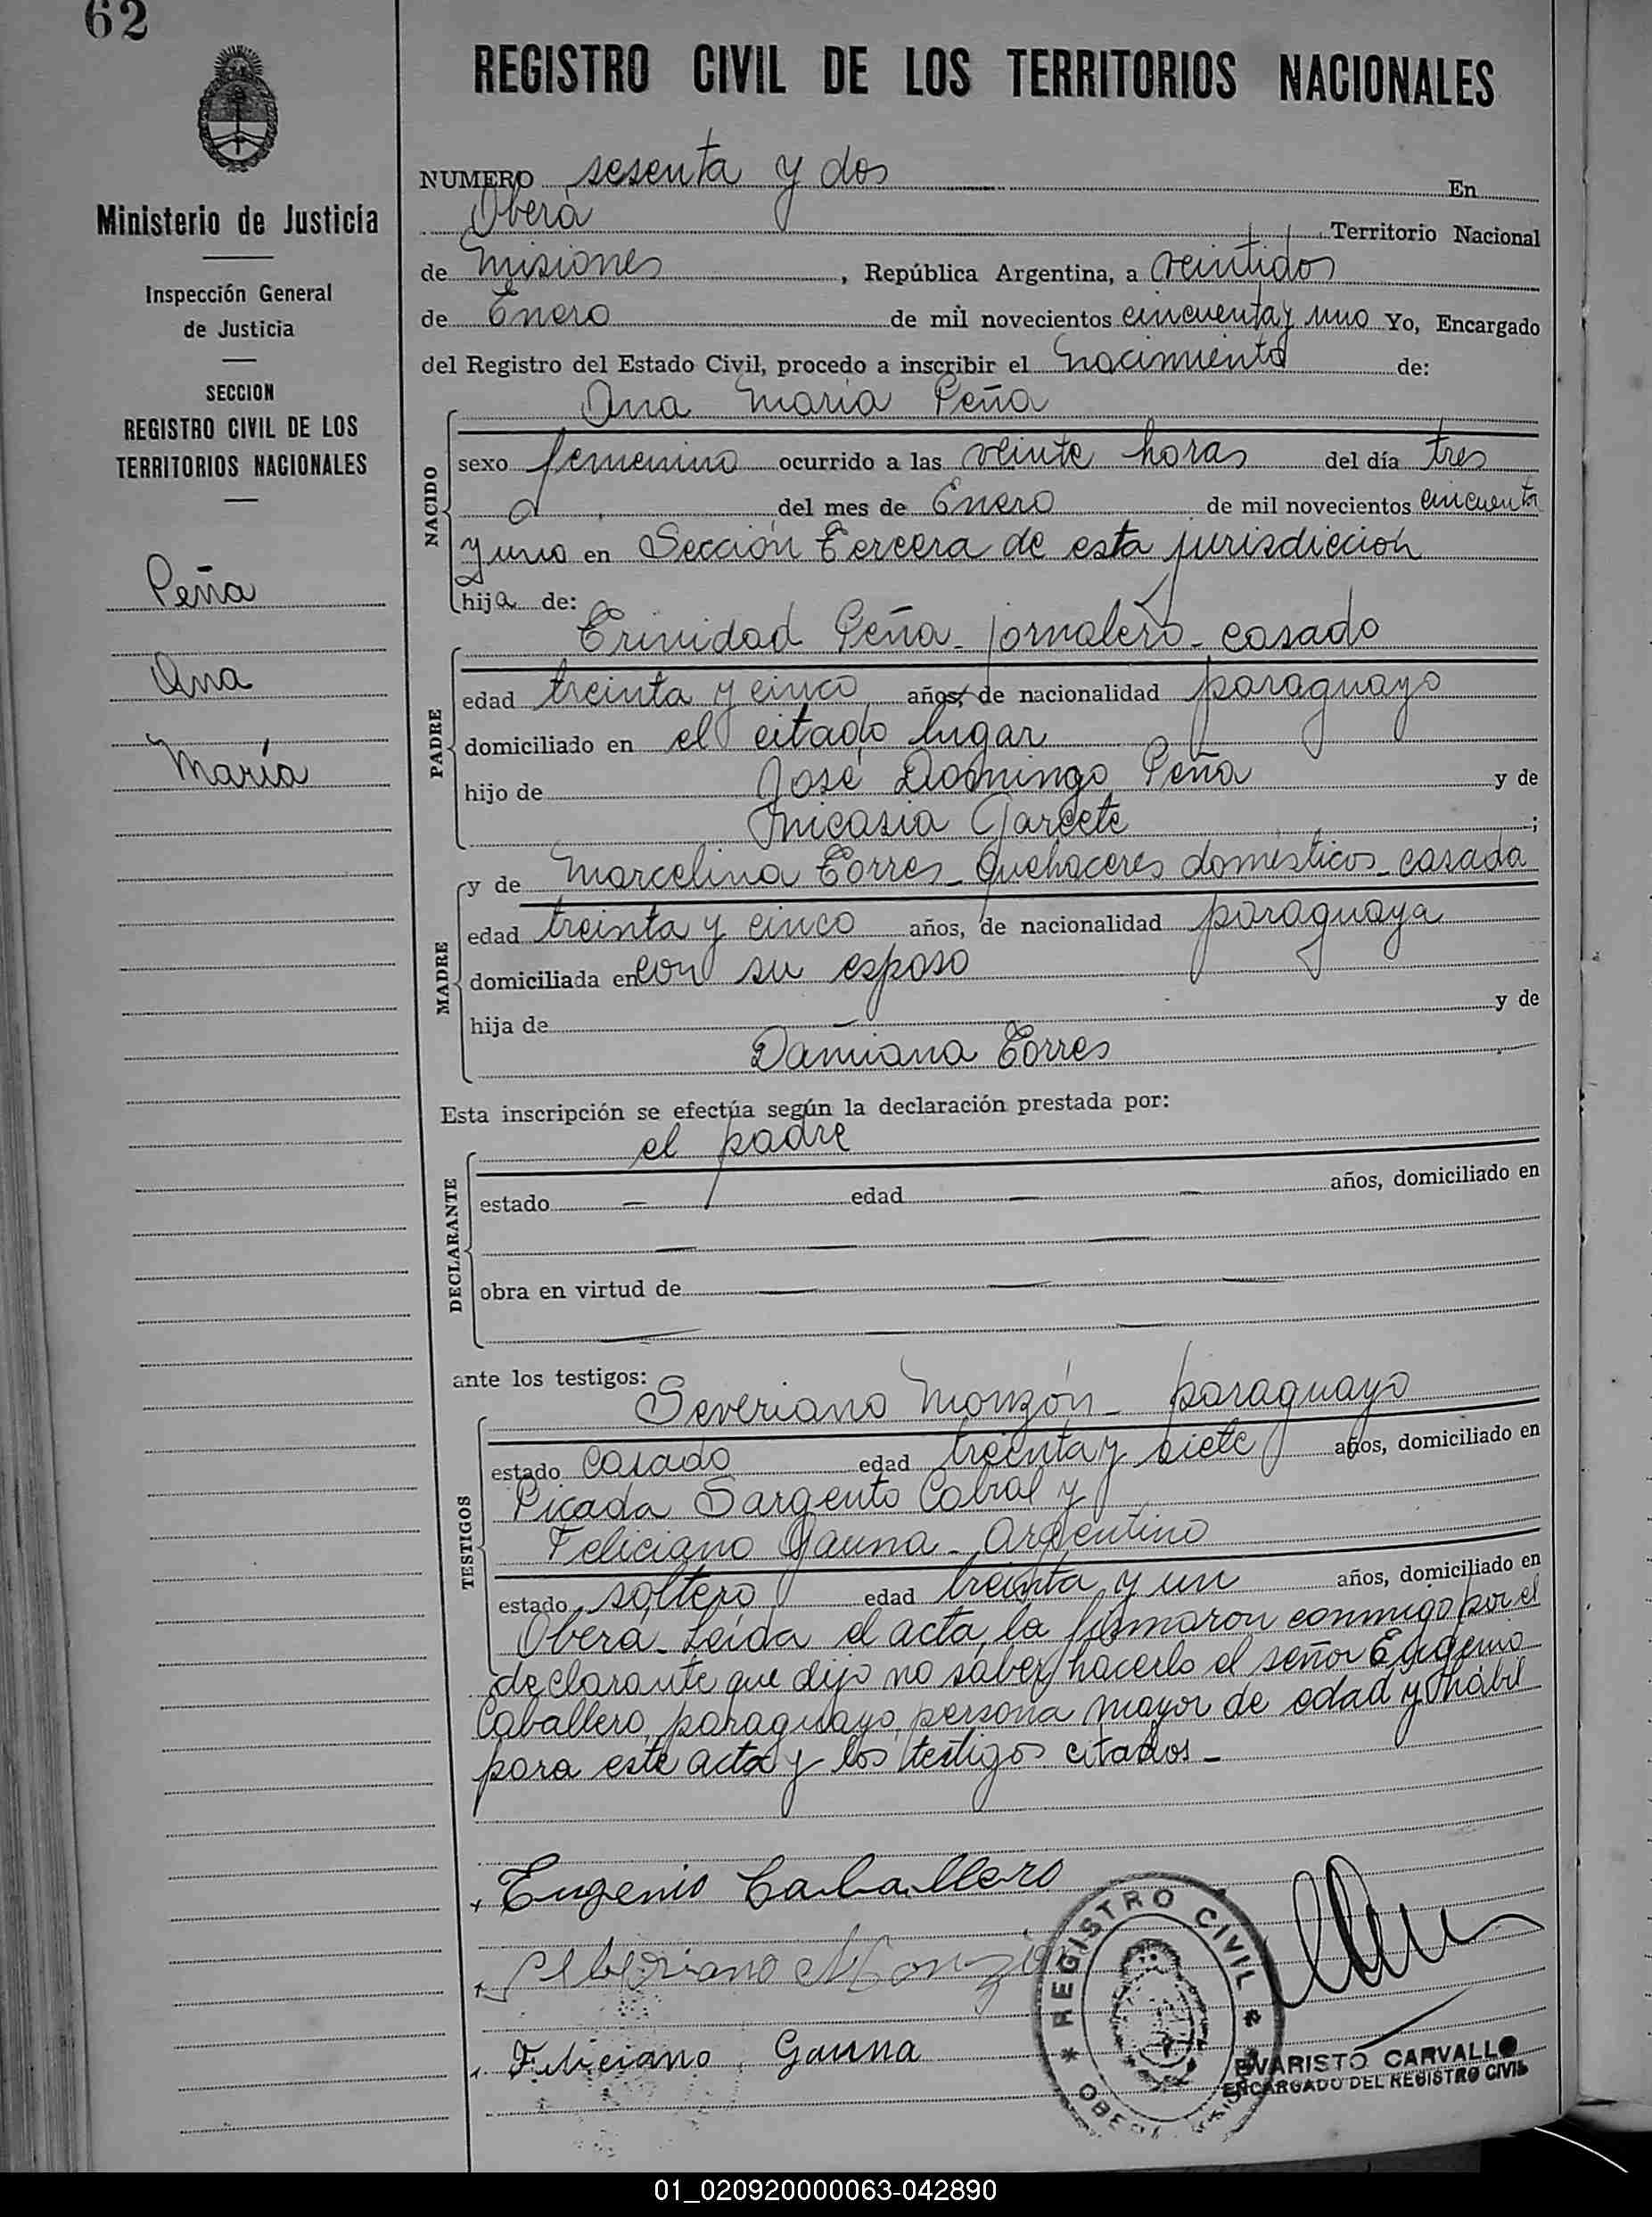 62
REGISTRO CIVIL DE LOS TERRITORIOS NACIONALES
Ministerio de Justicia
Inspección General
de Justicia
SECCION
REGISTRO CIVIL DE LOS
TERRITORIOS NACIONALES
Peña
Ana
María
NUMERO sesenta y dos En
Oberá Territorio Nacional
de Misiones, República Argentina, a veintidos
de Enero de mil novecientos cincuenta y uno Yo, Encargado
del Registro del Estado Civil, procedo a inscribir el nacimiento de:
NACIDO
Ana María Peña
sexo femenino ocurrido a las veinte horas del día tres
del mes de Enero de mil novecientos cincuenta
y uno en Sección Tercera de esta jurisdicción
hija de:
PADRE
Trinidad Peña - jornalero - casado
edad treinta y cinco años, de nacionalidad paraguayo
domiciliado en el citado lugar
hijo de José Domingo Peña y de
Inicasia Garcete ;
MADRE
y de Marcelina Torres - quehaceres domésticos - casada
edad treinta y cinco años, de nacionalidad paraguaya
domiciliada en con su esposo
hija de — y de
Damiana Torres
Esta inscripción se efectúa según la declaración prestada por:
DECLARANTE
el padre
estado — edad — — años, domiciliado en
— — —
obra en virtud de — — —
— — —
ante los testigos:
TESTIGOS
Severiano Monzón - paraguayo
estado casado edad treinta y siete años, domiciliado en
Picada Sargento Cabral y
Feliciano Gauna - Argentino
estado soltero edad treinta y un años, domiciliado en
Oberá - Leída el acta, la firmaron conmigo por el
declarante que dijo no saber hacerlo el señor Eugenio
Caballero, paraguayo, persona mayor de edad y hábil
para este acta y los testigos citados -
Eugenio Caballero
Monzón
Feliciano Gauna
REGISTRO CIVIL
OBERA
EVARISTO CARVALLO
ENCARGADO DEL REGISTRO CIVIL
01_020920000063-042890